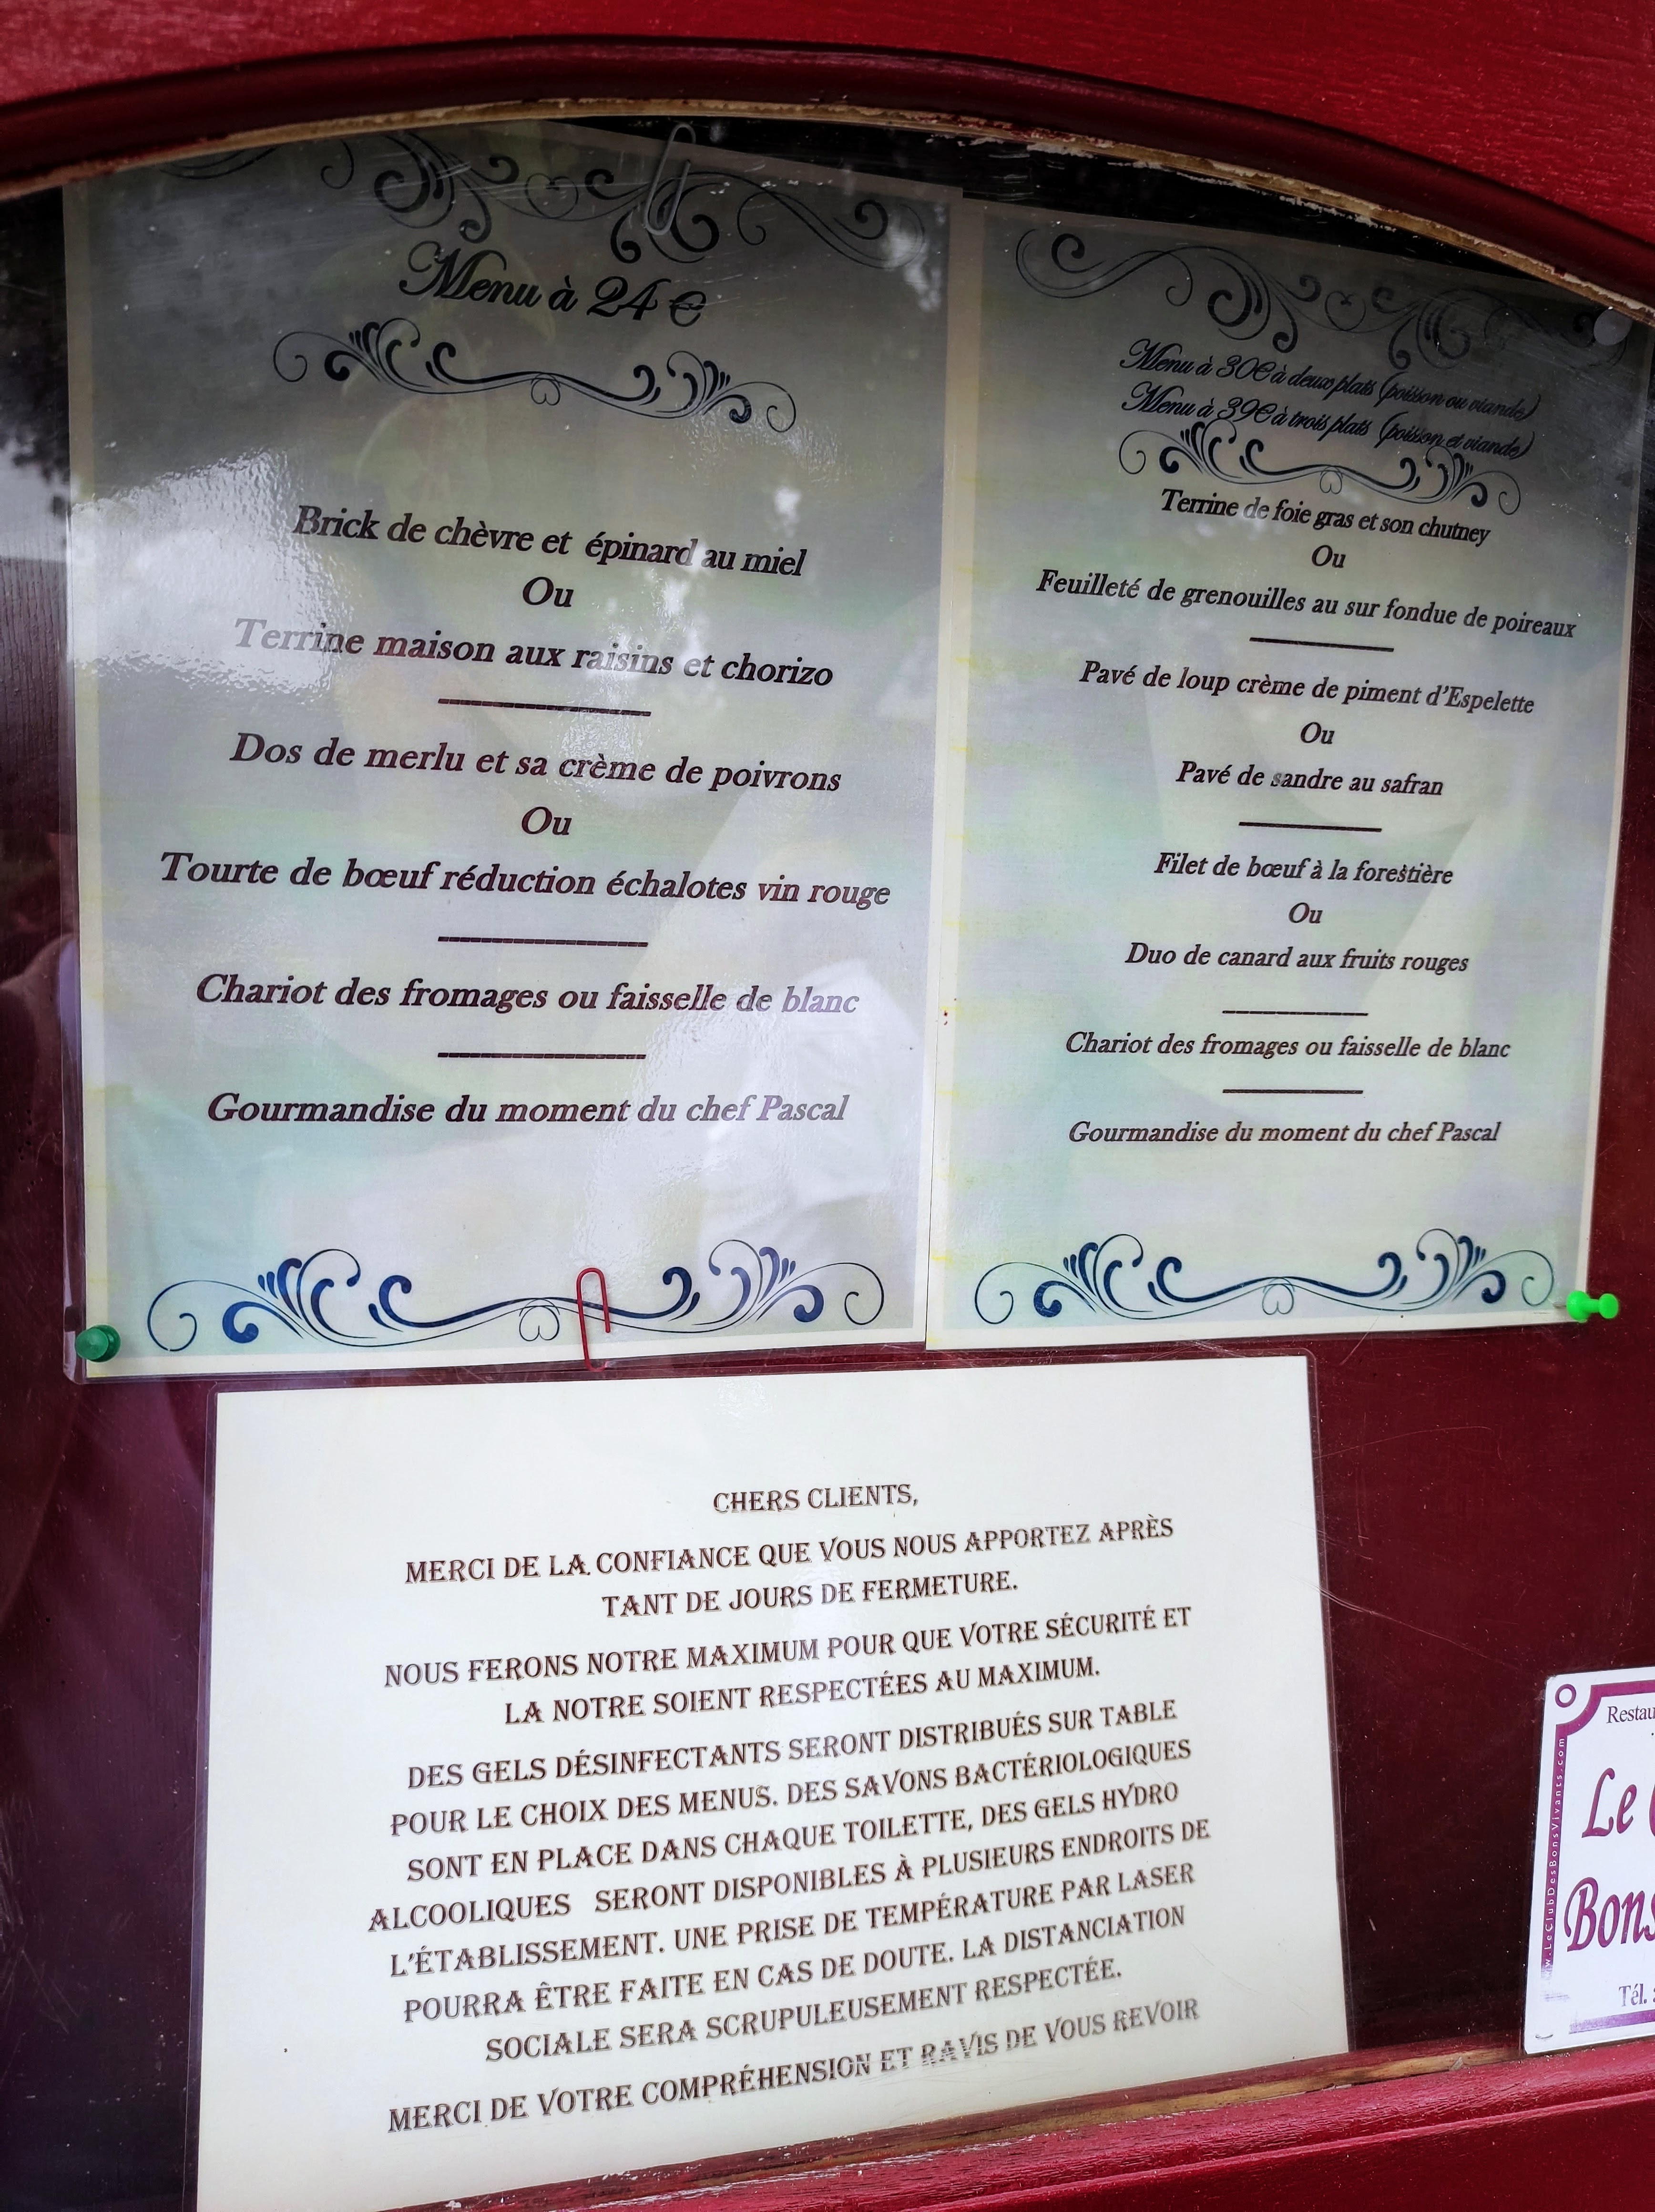 Menu à 24 €
Brick de chèvre et épinard au miel
Ou
Terrine maison aux raisins et chorizo
Dos de merlu et sa crème de poivrons
Ou
Tourte de bœuf réduction échalotes vin rouge
Chariot des fromages ou faisselle de blanc
Gourmandise du moment du chef Pascal
Menu à 30€ à deux plats (poisson ou viande)
Menu à 39€ à trois plats (poisson et viande)
Terrine de foie gras et son chutney
Ou
Feuilleté de grenouilles au sur fondue de poireaux
Pavé de loup crème de piment d'Espelette
Ou
Pavé de sandre au safran
Filet de bœuf à la forestière
Ou
Duo de canard aux fruits rouges
Chariot des fromages ou faisselle de blanc
Gourmandise du moment du chef Pascal
CHERS CLIENTS,
MERCI DE LA CONFIANCE QUE VOUS NOUS APPORTEZ APRÈS
TANT DE JOURS DE FERMETURE.
NOUS FERONS NOTRE MAXIMUM POUR QUE VOTRE SÉCURITÉ ET
LA NOTRE SOIENT RESPECTÉES AU MAXIMUM.
DES GELS DÉSINFECTANTS SERONT DISTRIBUÉS SUR TABLE
POUR LE CHOIX DES MENUS. DES SAVONS BACTÉRIOLOGIQUES
SONT EN PLACE DANS CHAQUE TOILETTE, DES GELS HYDRO
ALCOOLIQUES SERONT DISPONIBLES À PLUSIEURS ENDROITS DE
L'ÉTABLISSEMENT. UNE PRISE DE TEMPÉRATURE PAR LASER
POURRA ÊTRE FAITE EN CAS DE DOUTE. LA DISTANCIATION
SOCIALE SERA SCRUPULEUSEMENT RESPECTÉE.
MERCI DE VOTRE COMPRÉHENSION ET RAVIS DE VOUS REVOIR
Le
Bons
Tél.
w.LeClubDesBonsVivants.com